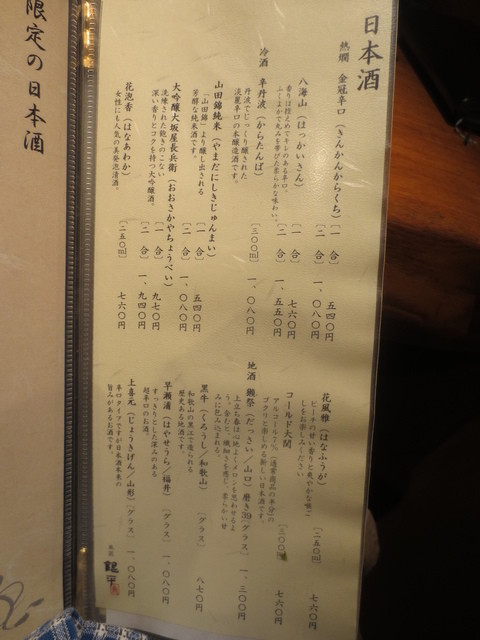 日本酒
熱燗 金冠辛口（きんかんからくち）［一 合］ 五四〇円
［二 合］ 一、〇八〇円
八海山（はっかいさん）［一 合］ 七六〇円
香りは控えめでキレのある辛口。
ふくよかで丸みを帯びた柔らかな味わい。
［二 合］ 一、五二〇円
冷酒 辛丹波（からたんば）［三〇〇ml］ 一、〇八〇円
丹波でじっくり醸された
淡麗辛口の本醸造酒です。
山田錦純米（やまだにしきじゅんまい）［一 合］ 五四〇円
「山田錦」より醸し出される
芳醇な純米酒です。
［二 合］ 一、〇八〇円
大吟醸大坂屋長兵衛（おおさかやちょうべい）［一 合］ 九七〇円
洗練された飽きのこない
深い香りとコクを持つ大吟醸酒。
［二 合］ 一、九四〇円
花泡香（はなあわか）［二五〇ml］ 七六〇円
女性にも人気の美発泡清酒。
花風雅（はなふうが）［二五〇ml］ 七六〇円
ピーチの甘い香りと爽やかな喉ご
しをお楽しみください
コールド大関［三〇〇ml］ 七六〇円
アルコール7％（通常商品の半分）の
ゴクリと楽しめる新しい日本酒です。
地酒 獺祭（だっさい／山口）磨き39［グラス］ 一、三〇〇円
黒牛（くろうし／和歌山）［グラス］ 八七〇円
和歌山の黒江で造られる
歴史ある地酒です。
早瀬浦（はやせうら／福井）［グラス］ 一、〇八〇円
すっきりとした深みのある
超辛口のお酒。
上喜元（じょうきげん／山形）［グラス］ 一、〇八〇円
辛口タイプですが日本酒本来の
旨みがあるお酒です。
銀平
限定の日本酒